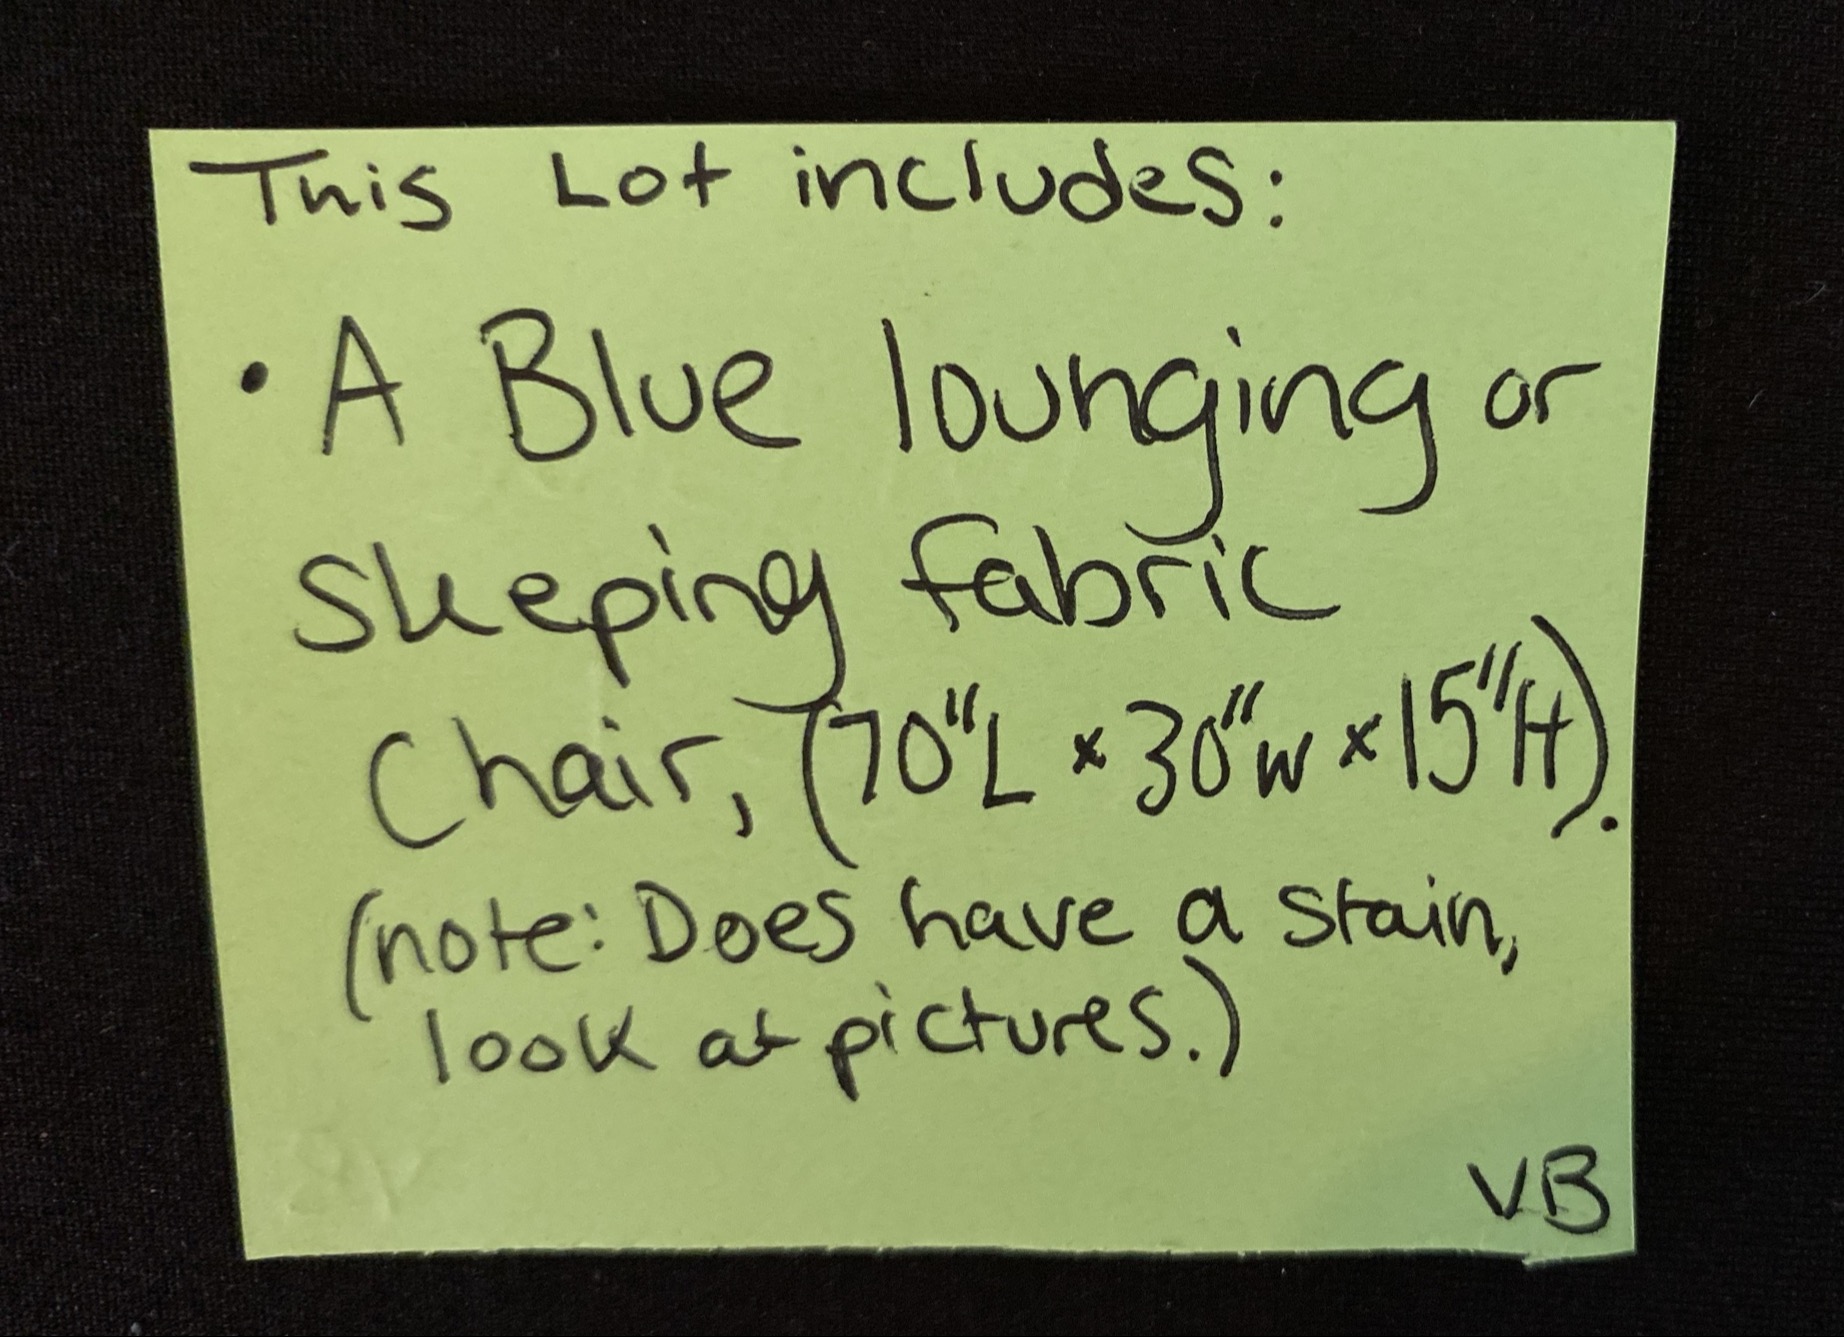 This Lot includes:
• A Blue lounging or
sleeping fabric
Chair, (70"L x 30"W x 15"H).
(note: Does have a stain,
look at pictures.)
VB